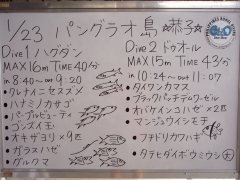 1/23 パングラオ島 ☆恭子☆
Dive1 ハグダン
MAX16m TIME40分
in 8:40〜out 9:20
・クレナイニセスズメ
・ハナミノカサゴ
・パープルビューティ
・ゴンズイ玉
・オキザヨリ×9匹
・ガラスハゼ
・グルクマ
Dive2 ドゥオール
MAX15m TIME43分
in 10:24〜out 11:07
・タイワンカマス
・ブラックパッチデムワーゼル
・オバケインコハゼ×2匹
・マンジュウイシモチ
・フチドリカワハギ
・タテヒダイボウミウシ 大